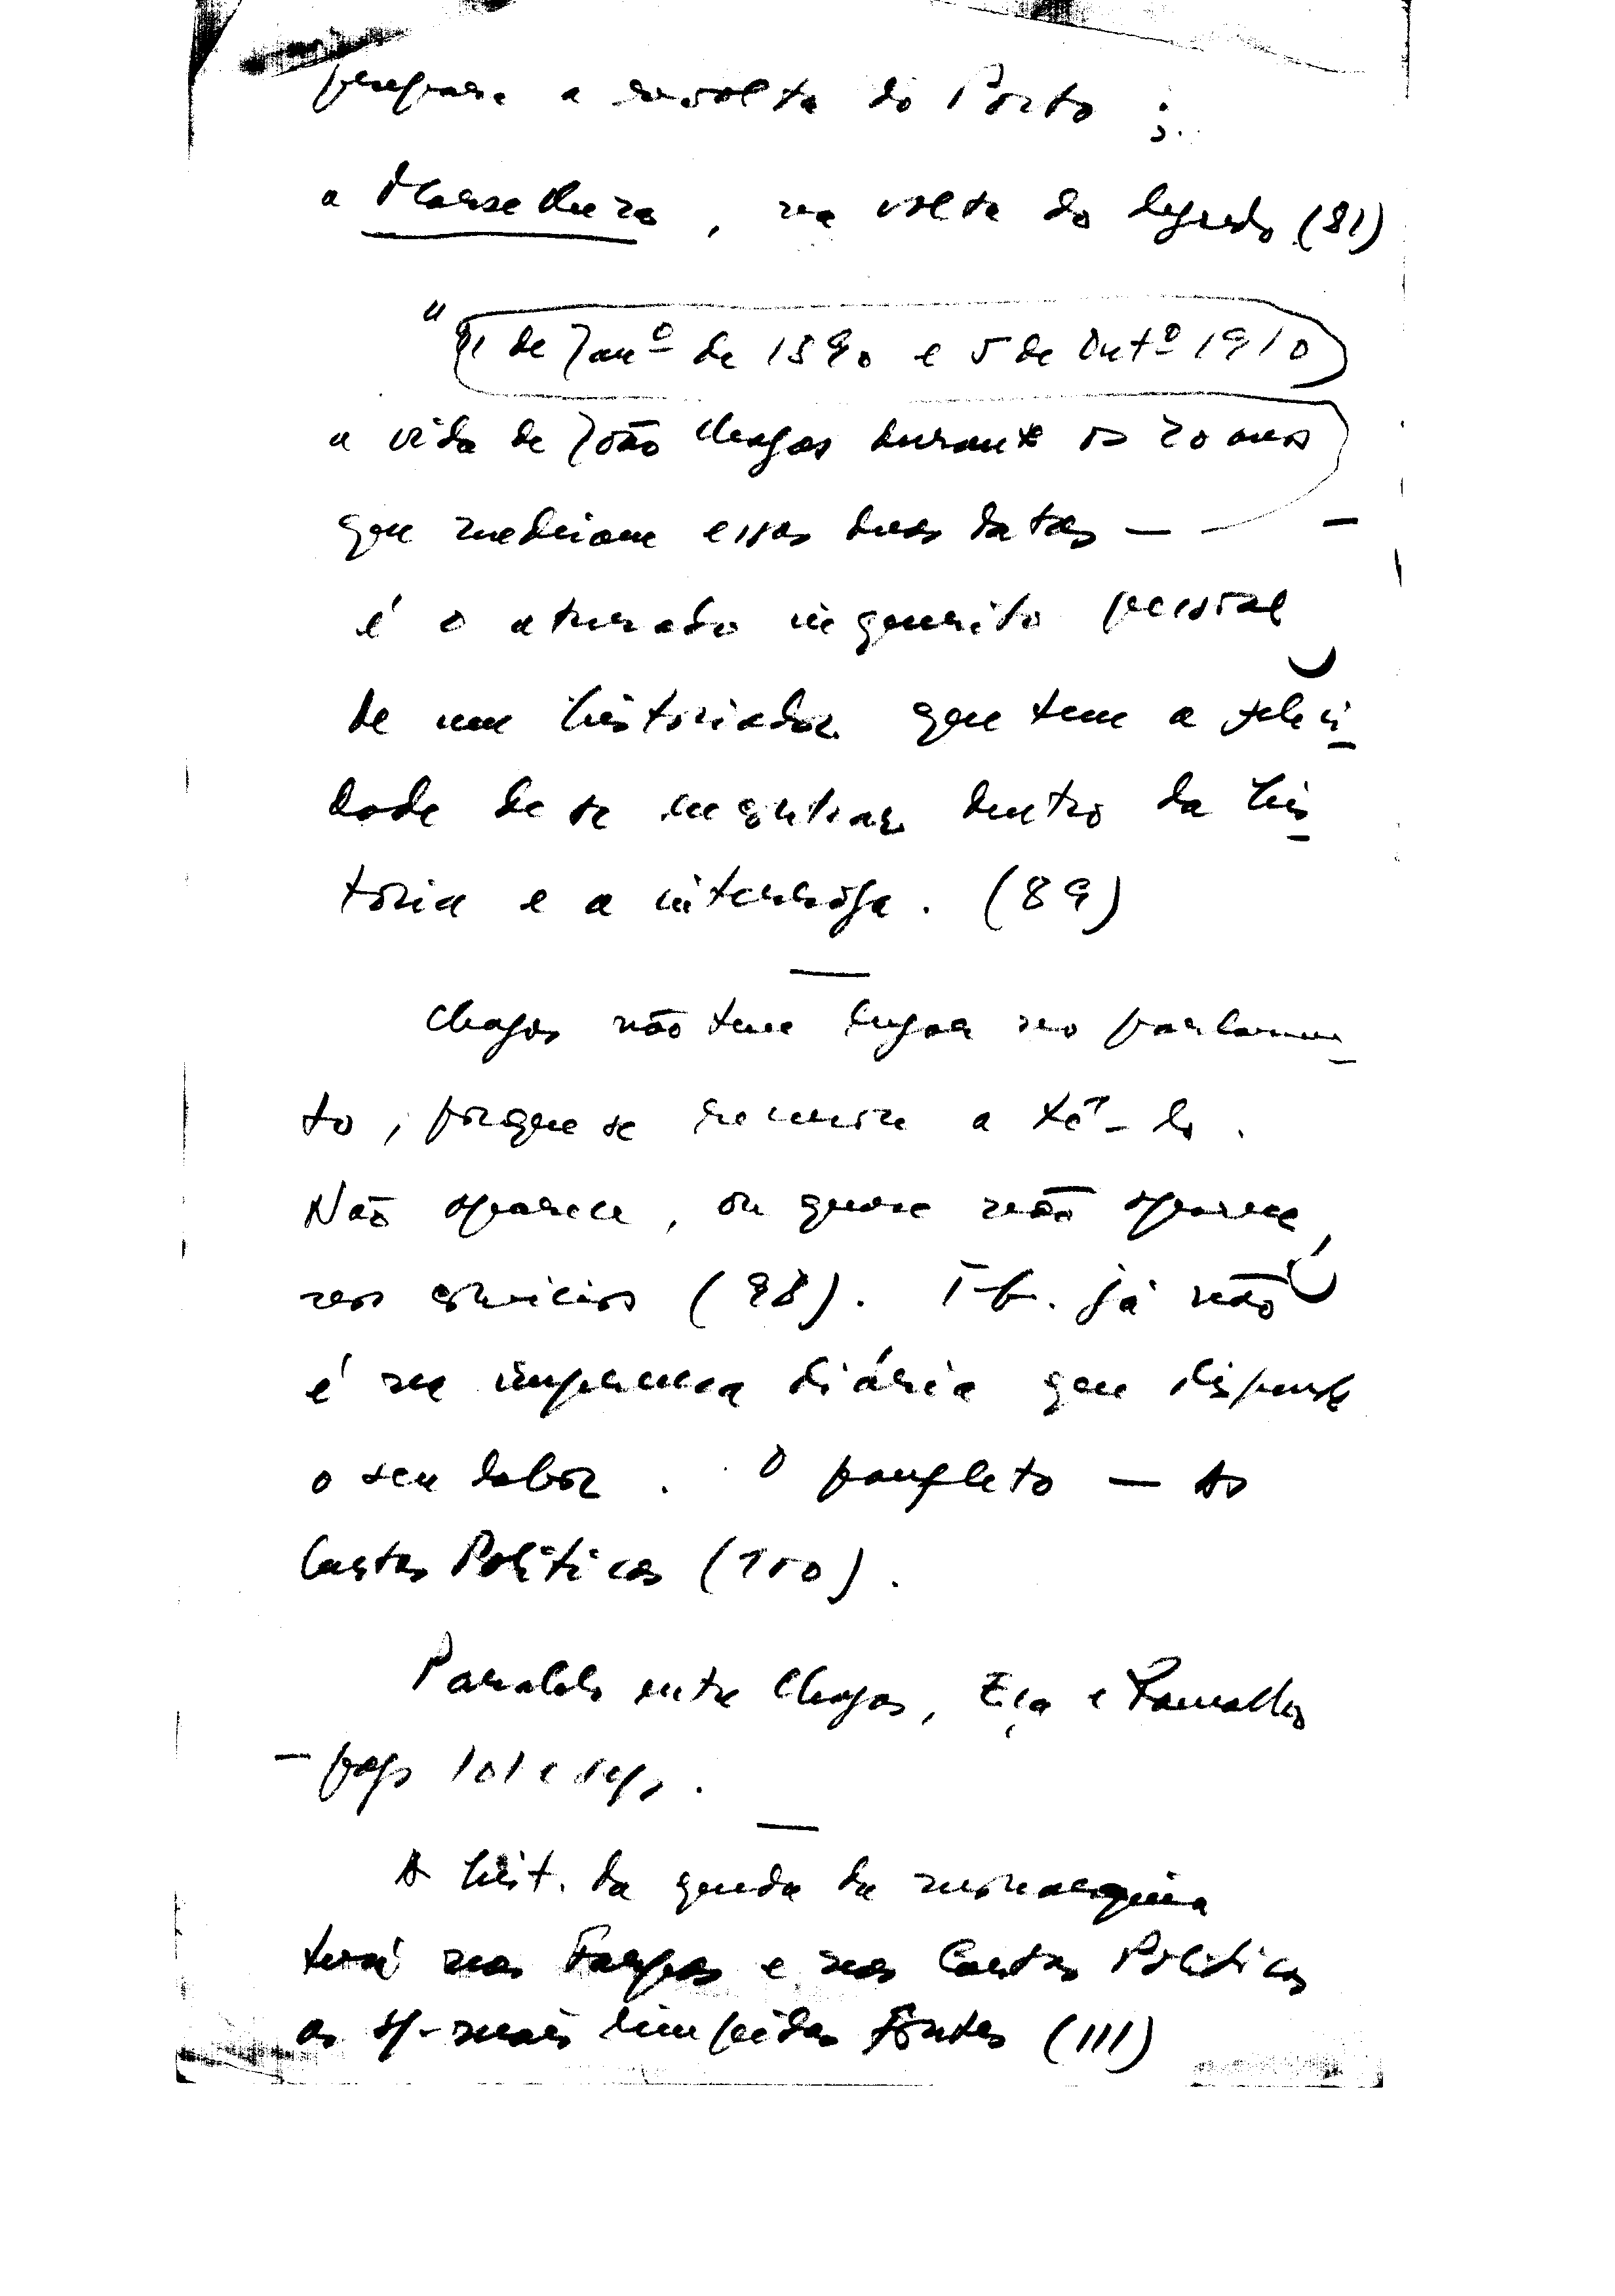 prepara a revolta do Porto ;
a Marselheza, na volta do degredo (81)
" 11 de Janº de 1890 e 5 de Outº 1910
a vida de João Chagas durante os 20 anos
que medeiam essas duas datas —  —
é o aturado inquérito pessoal
de um historiador que tem a felici-
dade de se encontrar dentro da his-
tória e a interroga. (89)
Chagas não tem lugar no parlamen-
to, porque se recusou a tê-lo.
Não aparece, ou quase não aparece,
nos comícios (98). Tb. já não
é na imprensa diária que dispende
o seu labor. O panfleto — As
Cartas Políticas (100).
Paralelo entre Chagas, Eça e Ramalho
— pags 101 e segs.
A hist. da queda da monarquia
terá nas Farpas e nas Cartas Políticas
as mais límpidas fontes (111)